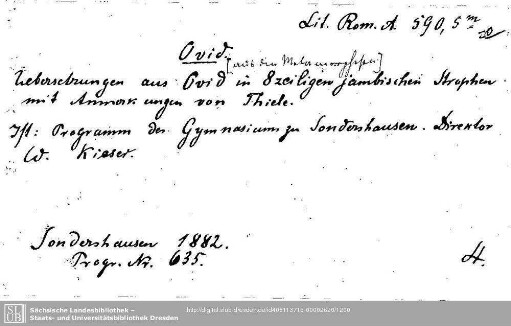 Lit. Rom. A. 590, 5 m
Ovid.
[aus den Metamorphosen]
Uebersetzungen aus Ovid in 8zeiligen jambischen Strophen
mit Anmerkungen von Thiele.
Ist: Programm des Gymnasiums zu Sondershausen. Direktor
W. Kieser.
Sondershausen 1882.
Progr. Nr. 635.
4.
SLUB
Sächsische Landesbibliothek –
Staats- und Universitätsbibliothek Dresden